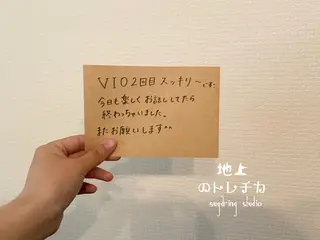 VIO2回目スッキリ〜です!
今日も楽しくお話ししてたら
終わっちゃいました。
またお願いします^^
地上
のトレチカ
sugdring studio